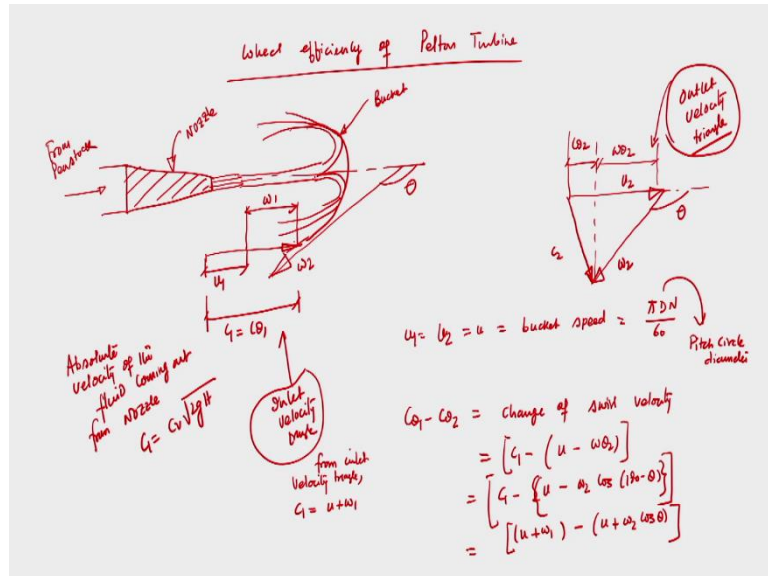 Wheel efficiency of Pelton Turbine
Bucket
Nozzle
From
Penstock
θ
ω1
ω2
u1
C1 = Cθ1
Absolute
velocity of the
fluid coming out
from Nozzle
C1 = Cv √2gH
Inlet
velocity
from inlet
velocity triangle,
C1 = u+ω1
Outlet
velocity
triangle
Cθ2
ωθ2
u2
θ
c2
ω2
u1 = u2 = u = bucket speed = πDN/60
Pitch Circle
diameter
Cθ1 - Cθ2 = change of swirl velocity
= [C1 - (u - ωθ2)]
= [C1 - {u - ω2 cos (180-θ)}]
= [(u+ω1) - (u+ω2 cosθ)]